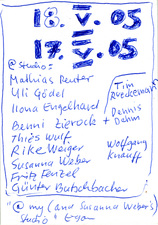 18. V. 05
17. V. 05
@ studio:
Mathias Reuter
Uli Gödel
Ilona Engelhardt
Benni Zierock
Thies Wulf
Rike Weiger
Susanna Weber
Fritz Fenzel
Günter Butschbacher
Tim
Breckemann
Dennis
+ Dahm
Wolfgang
Knauff
@ my (and Susanna Weber's)
Studio + Ego